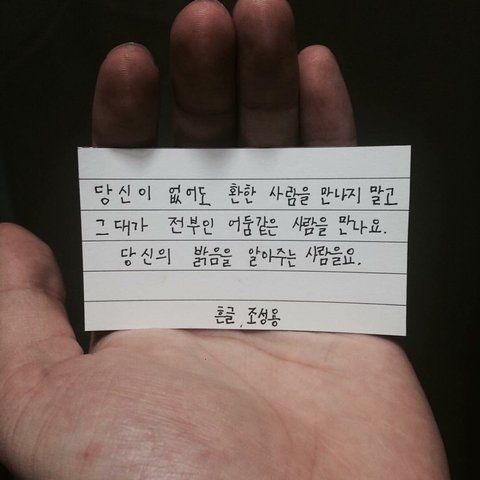 당신이 없어도 환한 사람을 만나지 말고
그대가 전부인 어둠같은 사람을 만나요.
당신의 밝음을 알아주는 사람을요.
흔글, 조성용